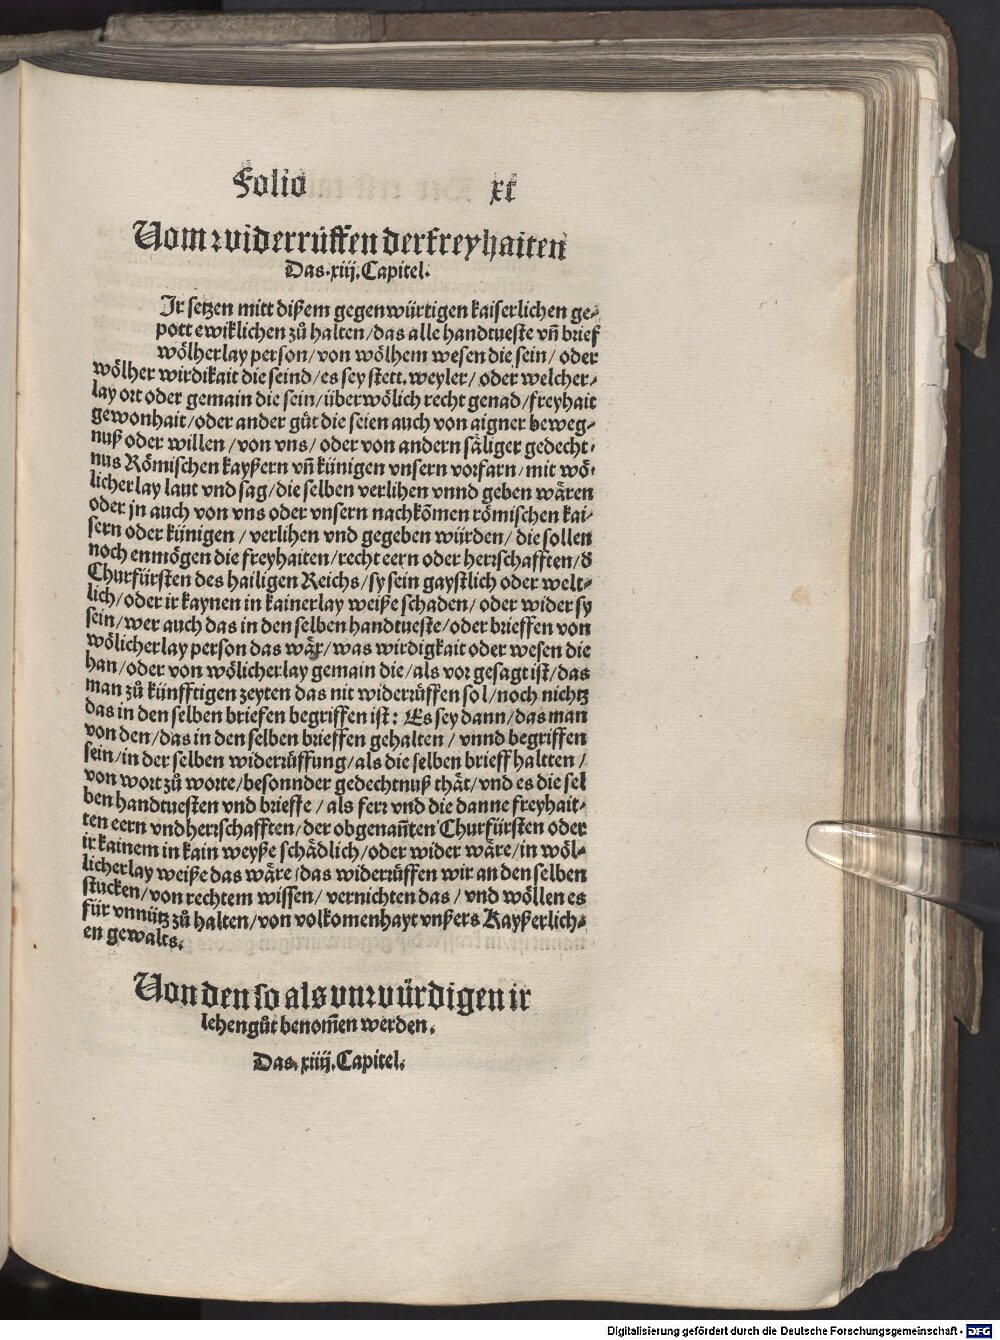 Folio xi
Vom widerrüffen der freyhaiten
Das.xiij.Capitel.
Ir setzen mitt dißem gegenwürtigen kaiserlichen ge⸗
pott ewiklichen zů halten/das alle handtueste vñ brief
wölherlay person/von wölhem wesen die sein/oder
wölher wirdikait die seind/es sey stett.weyler/oder welcher⸗
lay ort oder gemain die sein/überwölich recht genad/freyhait
gewonhait/oder ander gůt die seien auch von aigner beweg⸗
nuß oder willen/von vns/oder von andern säliger gedecht⸗
nus Römischen kayßern vñ künigen vnsern vorfarn/mit wö⸗
licherlay laut vnd sag/die selben verlihen vnnd geben wären
oder jn auch von vns oder vnsern nachkõmen römischen kai⸗
sern oder künigen/verlihen vnd gegeben würden/die sollen
noch enmögen die freyhaiten/recht eern oder herrschafften/d̄
Churfürsten des hailigen Reichs/sy sein gaystlich oder welt⸗
lich/oder ir kaynen in kainerlay weiße schaden/oder wider sy
sein/wer auch das in den selben handtueste/oder brieffen von
wölicherlay person das wär/was wirdigkait oder wesen die
han/oder von wölicherlay gemain die/als vor gesagt ist/das
man zů künfftigen zeyten das nit widerrüffen sol/noch nichtz
das in den selben briefen begriffen ist: Es sey dann/das man
von den/das in den selben brieffen gehalten/vnnd begriffen
sein/in der selben widerrüffung/als die selben brieff haltten/
von wort zů worte/besonnder gedechtnuß thät/vnd es die sel
ben handtuesten vnd brieffe/als ferr vnd die danne freyhait⸗
ten eern vnd herrschafften/der obgenañten Churfürsten oder
ir kainem in kain weyße schädlich/oder wider wäre/in wöl⸗
licherlay weiße das wäre/das widerrüffen wir an den selben
stucken/von rechtem wissen/vernichten das/vnd wöllen es
für vnnütz zů halten/von volkomenhayt vnßers Kayßerlich⸗
en gewalts.
Von den so als vnwürdigen ir
lehengůt benom̃en werden.
Das.xiiij.Capitel.
Digitalisierung gefördert durch die Deutsche Forschungsgemeinschaft - DFG